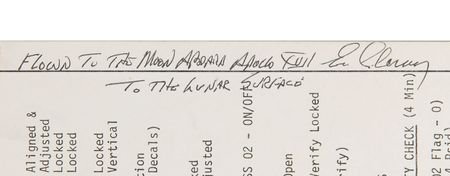 FLOWN TO THE MOON ABOARD APOLLO XVII Gene Cernan
TO THE LUNAR SURFACE
Aligned &
Adjusted
Locked
Locked
Locked
Vertical
Decals)
SS 02 - ON/OFF
Open
Verify Locked
CHECK (4 Min)
02 Flag - O)